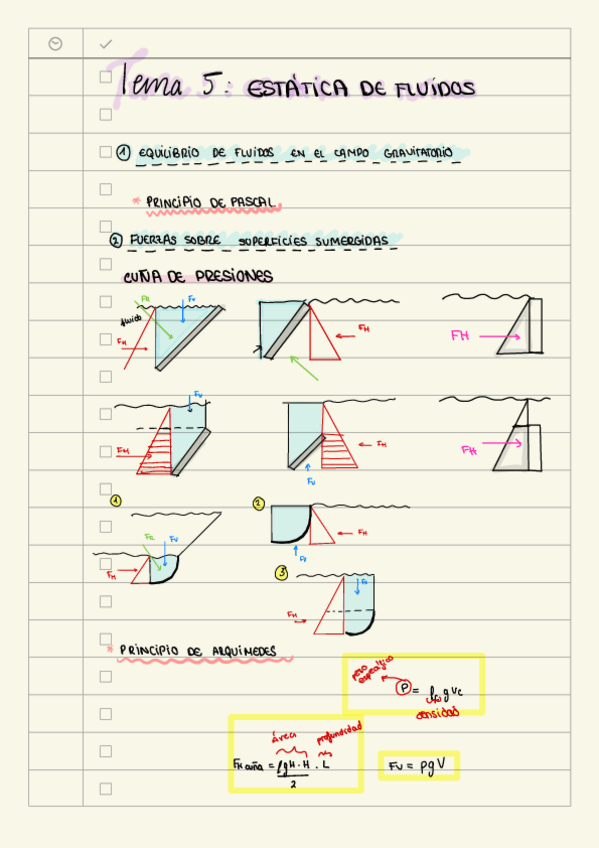 Tema 5: ESTÁTICA DE FLUIDOS
① EQUILIBRIO DE FLUIDOS EN EL CAMPO GRAVITATORIO
* PRINCIPIO DE PASCAL
② FUERZAS SOBRE SUPERFICIES SUMERGIDAS
CUÑA DE PRESIONES
FR FV
fluido
FH
FH
FH
FV
FH
FH
FV
FH
① ②
FR FV
FH
FH
FV
③
FV
FH
* PRINCIPIO DE ARQUIMEDES
peso específico
P = ρfw g Vc
densidad
área profundidad
FH cuña = ρgH·H/2 · L
FV = ρgV